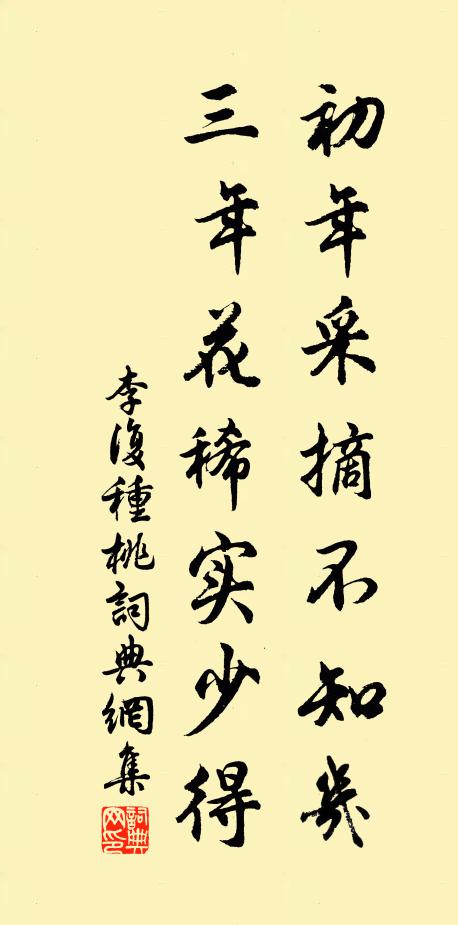 初年采摘不知幾
三年花稀实少得
李復種桃詞典網集
詞典
网印